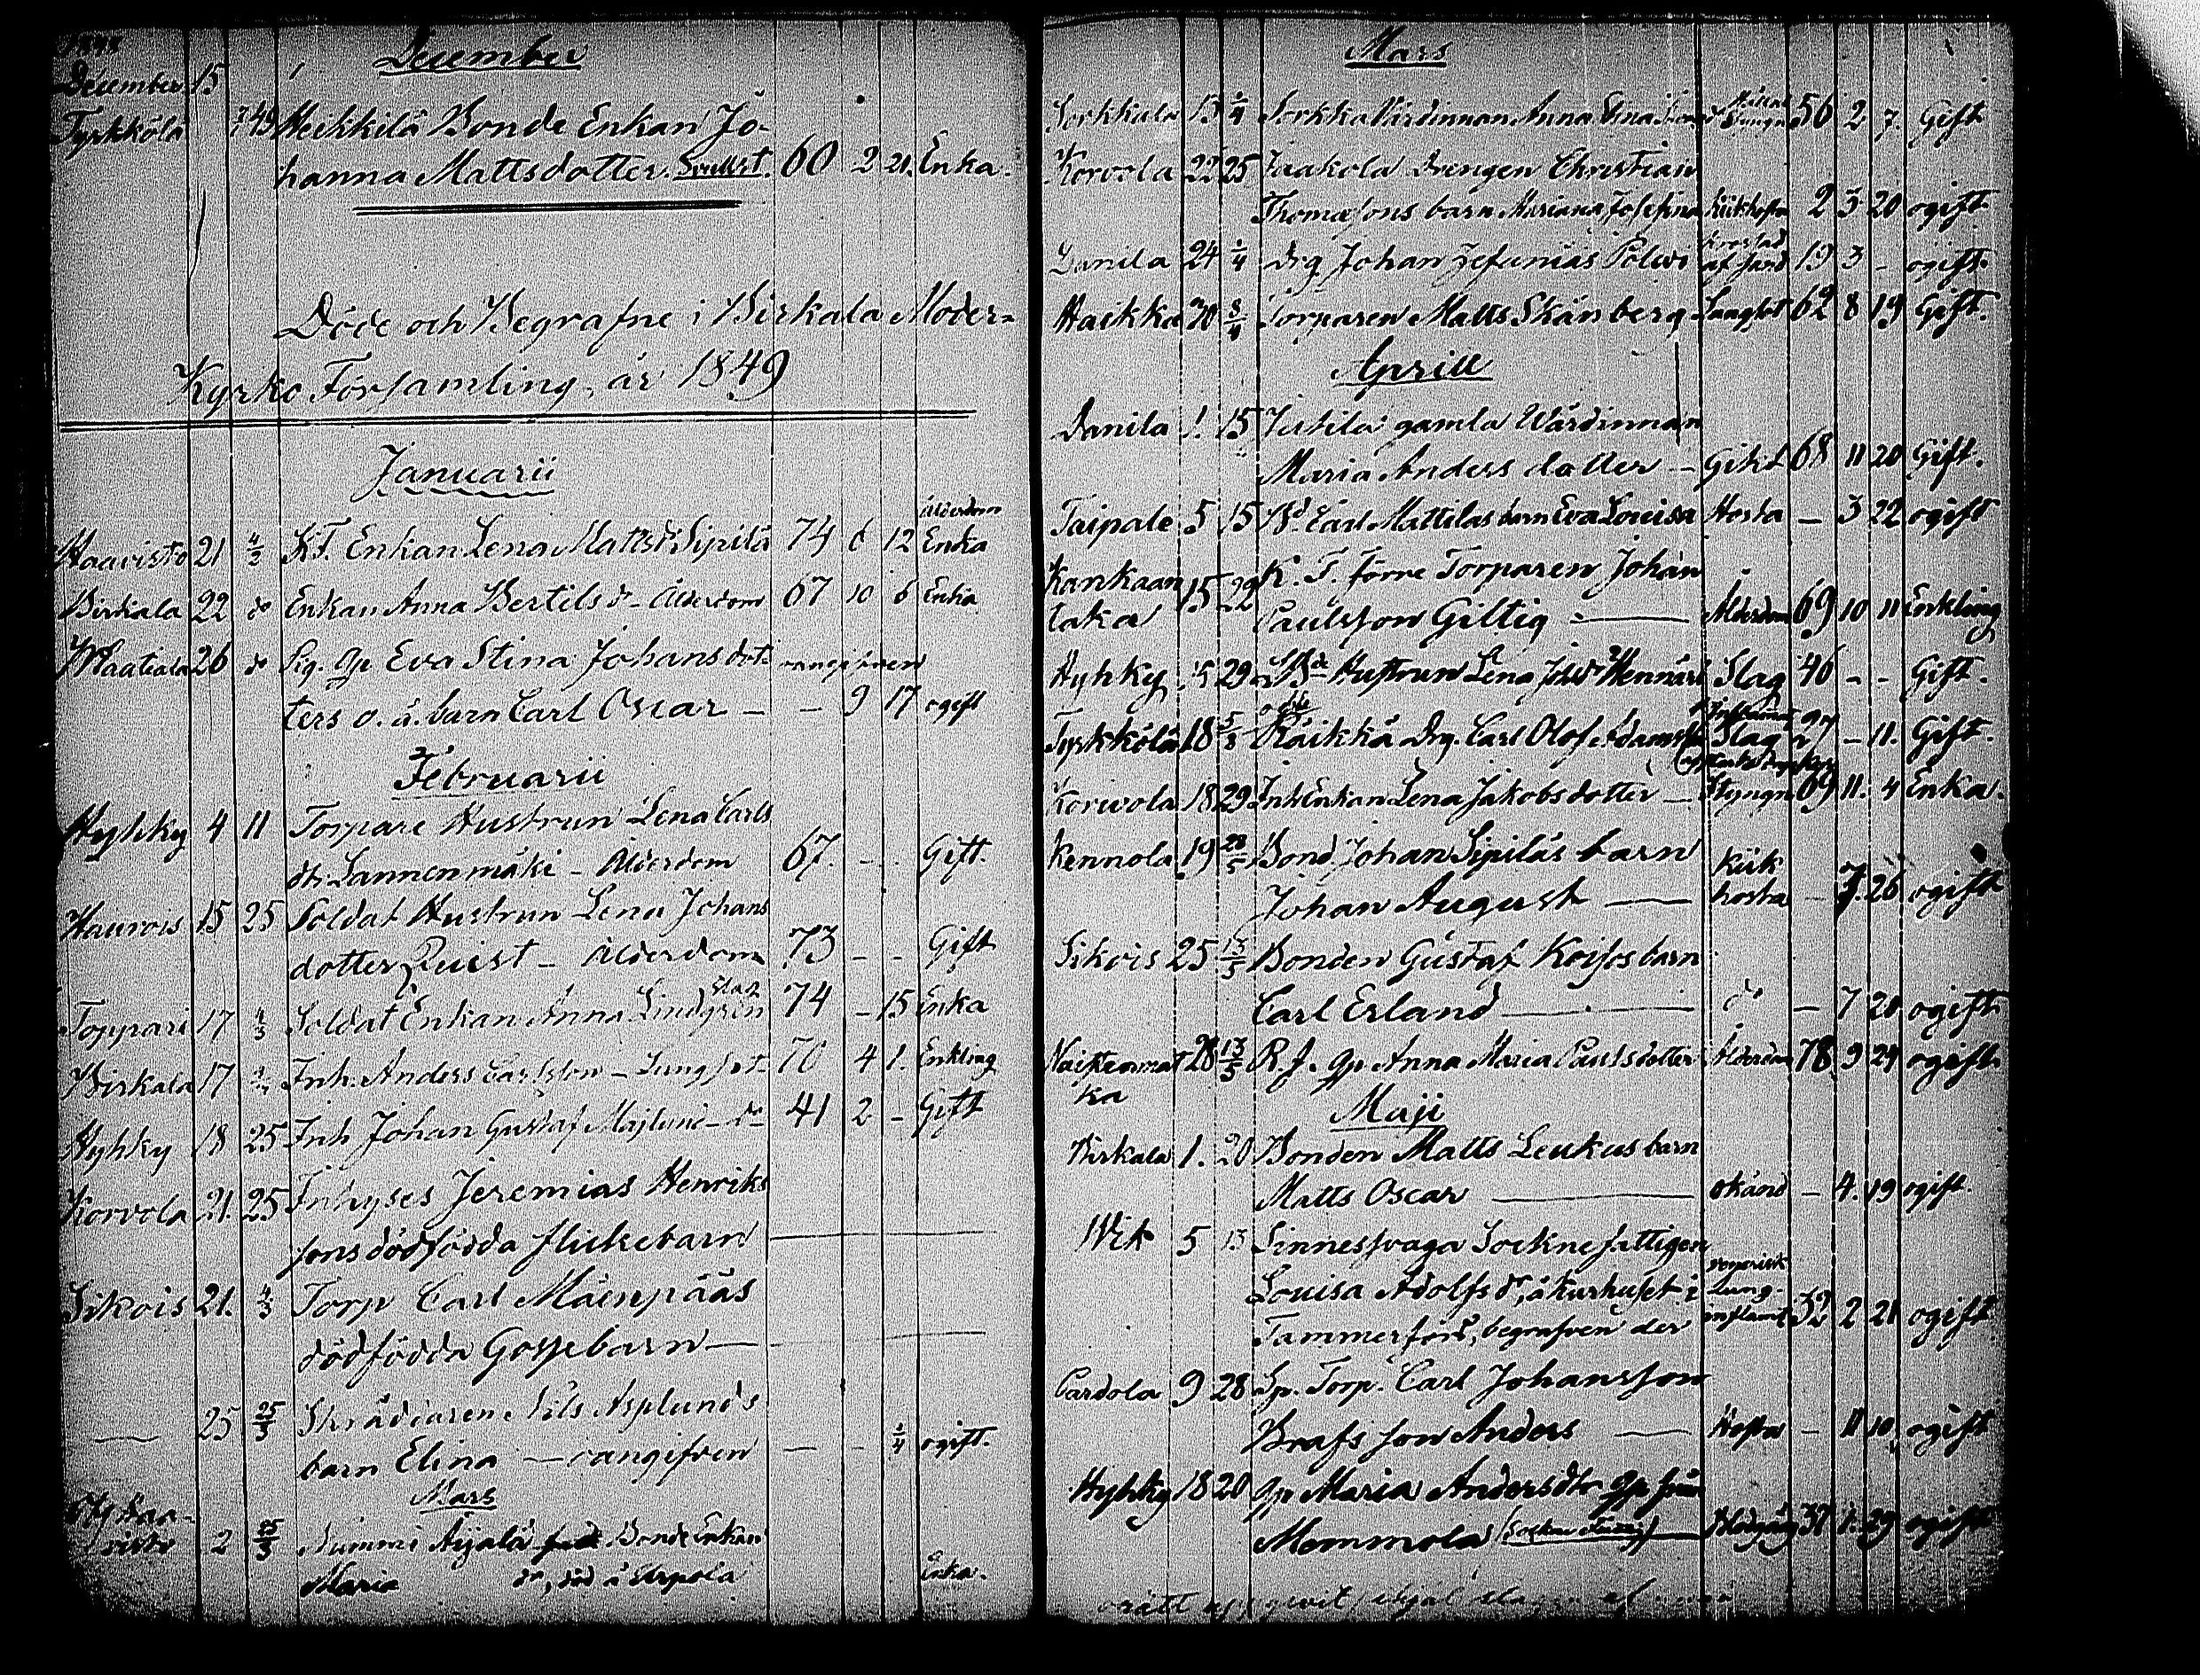 December
December 15
Tyrkkölä Heikkilä Bonde Enkan Jo-
hanna Mattsdotter 60 2 21. Enka.
Döde och Begrafne i Birkala Moder-
Kyrko Församling år 1849
Januarii
Ålderdom
Haavisto 21 4/2 K.F. Enkan Lena Mattsdr Sipilä 74 6 12 Enka
Birkala 22 do Enkan Anna Bertilsd - Ålderdom 67 10 6 Enka
Maatiala 26 do Pig. Eva Stina Johansdot- oangifven
ters o. ä. barn Carl Oscar - - 9 17 ogift
Februarii
Hyhky 4 11 Torpare Hustrun Lena Carls
dtr Lannenmäki - Ålderdom 67. - - Gift.
Haurois 15 25 Soldat Hustrun Lena Johans
dotter Quist - Ålderdom 73 - - Gift
Slag
Toppari 17 4/3 Soldat Enkan Anna Lindgren 74 - 15 Enka
Birkala 17 Inh. Anders Carlsson - Lungsot 70 4 1. Enkling
Hyhky 18 25 Inh Johan Gustaf Majlund - do 41 2 - Gift
Korvola 21. 25 Inhyses Jeremias Henriks
sons dödfödda flickebarn
Sikois 21. 4/3 Torp Carl Mäenpääs
dödfödda Gossebarn
25 25/3 Skräddaren Nils Asplunds
barn Elina - oangifven - - 1/4 ogift.
Mars
2 25/3 Nummi Äijälä Bonde Enkan
Maria dr, död å Erpola Enka.
Mars
Sorkkala 13 1/4 Sorkka Värdinnan Anna Stina 56 2 7. Gift
Korvola 22 25 Jaakola Drengen Christian
Thomassons barn Mariana Josefina Kikhosta 2 3 20 ogift
Danila 24 1/4 drg Johan Zefanias Polvi 19 3 - ogift.
Haikka 30 8/4 Torparen Matts Skänberg Lungsot 62 8 19 Gift.
Aprill
Danila 1. 15 gamla Wärdinnan
Maria Anders dotter - Gikt 68 11 20 Gift.
Taipale 5 15 Bd. Carl Mattilas barn Eva Lovisa Hosta - 3 22 ogift
Kankaan K. F. förre Torparen Johan
taka 15 22 Paulsson Giltig - Ålderdom 69 10 11 Enkling
Hyhky 15 29 Hustrun Lena Slag 46 - - Gift.
Tyrkkölä 18 5/8 Räikkä Drg. Carl Olof Adamsson Slag - 11. Gift.
Korwola 18 29 Inh Enkan Lena Jakobsdotter - Styngn 69 11. 4 Enka.
Kennola 19 28/5 Bond. Johan Sipiläs barn Kik
Johan August - hosta - 7. 26 ogift
Sikois 25 13/5 Bonden Gustaf Koisos barn
Carl Erland - do - 7 20 ogift
Naistenmat 28 13/5 R. f. Anna Maria Paulsdotter Ålderdom 78 9 24 ogift
ka
Maji
Birkala 1. 20 Bonden Matts Leukus barn
Matts Oscar - okänd - 4. 19 ogift.
Wik 5 13 Sinnessvaga Sockne fattigen
Lovisa Adolfsdr, å Kurhuset i Lung-
Tammerfors, begrafven der inflamt. 32 2 21 ogift
Pardola 9 28 Sp. Torp. Carl Johansson
Brafs son Anders - Hosta - 11 10 ogift
Hyhky 18 20 Maria Andersdtr
Mommola 37 1. 29 ogift